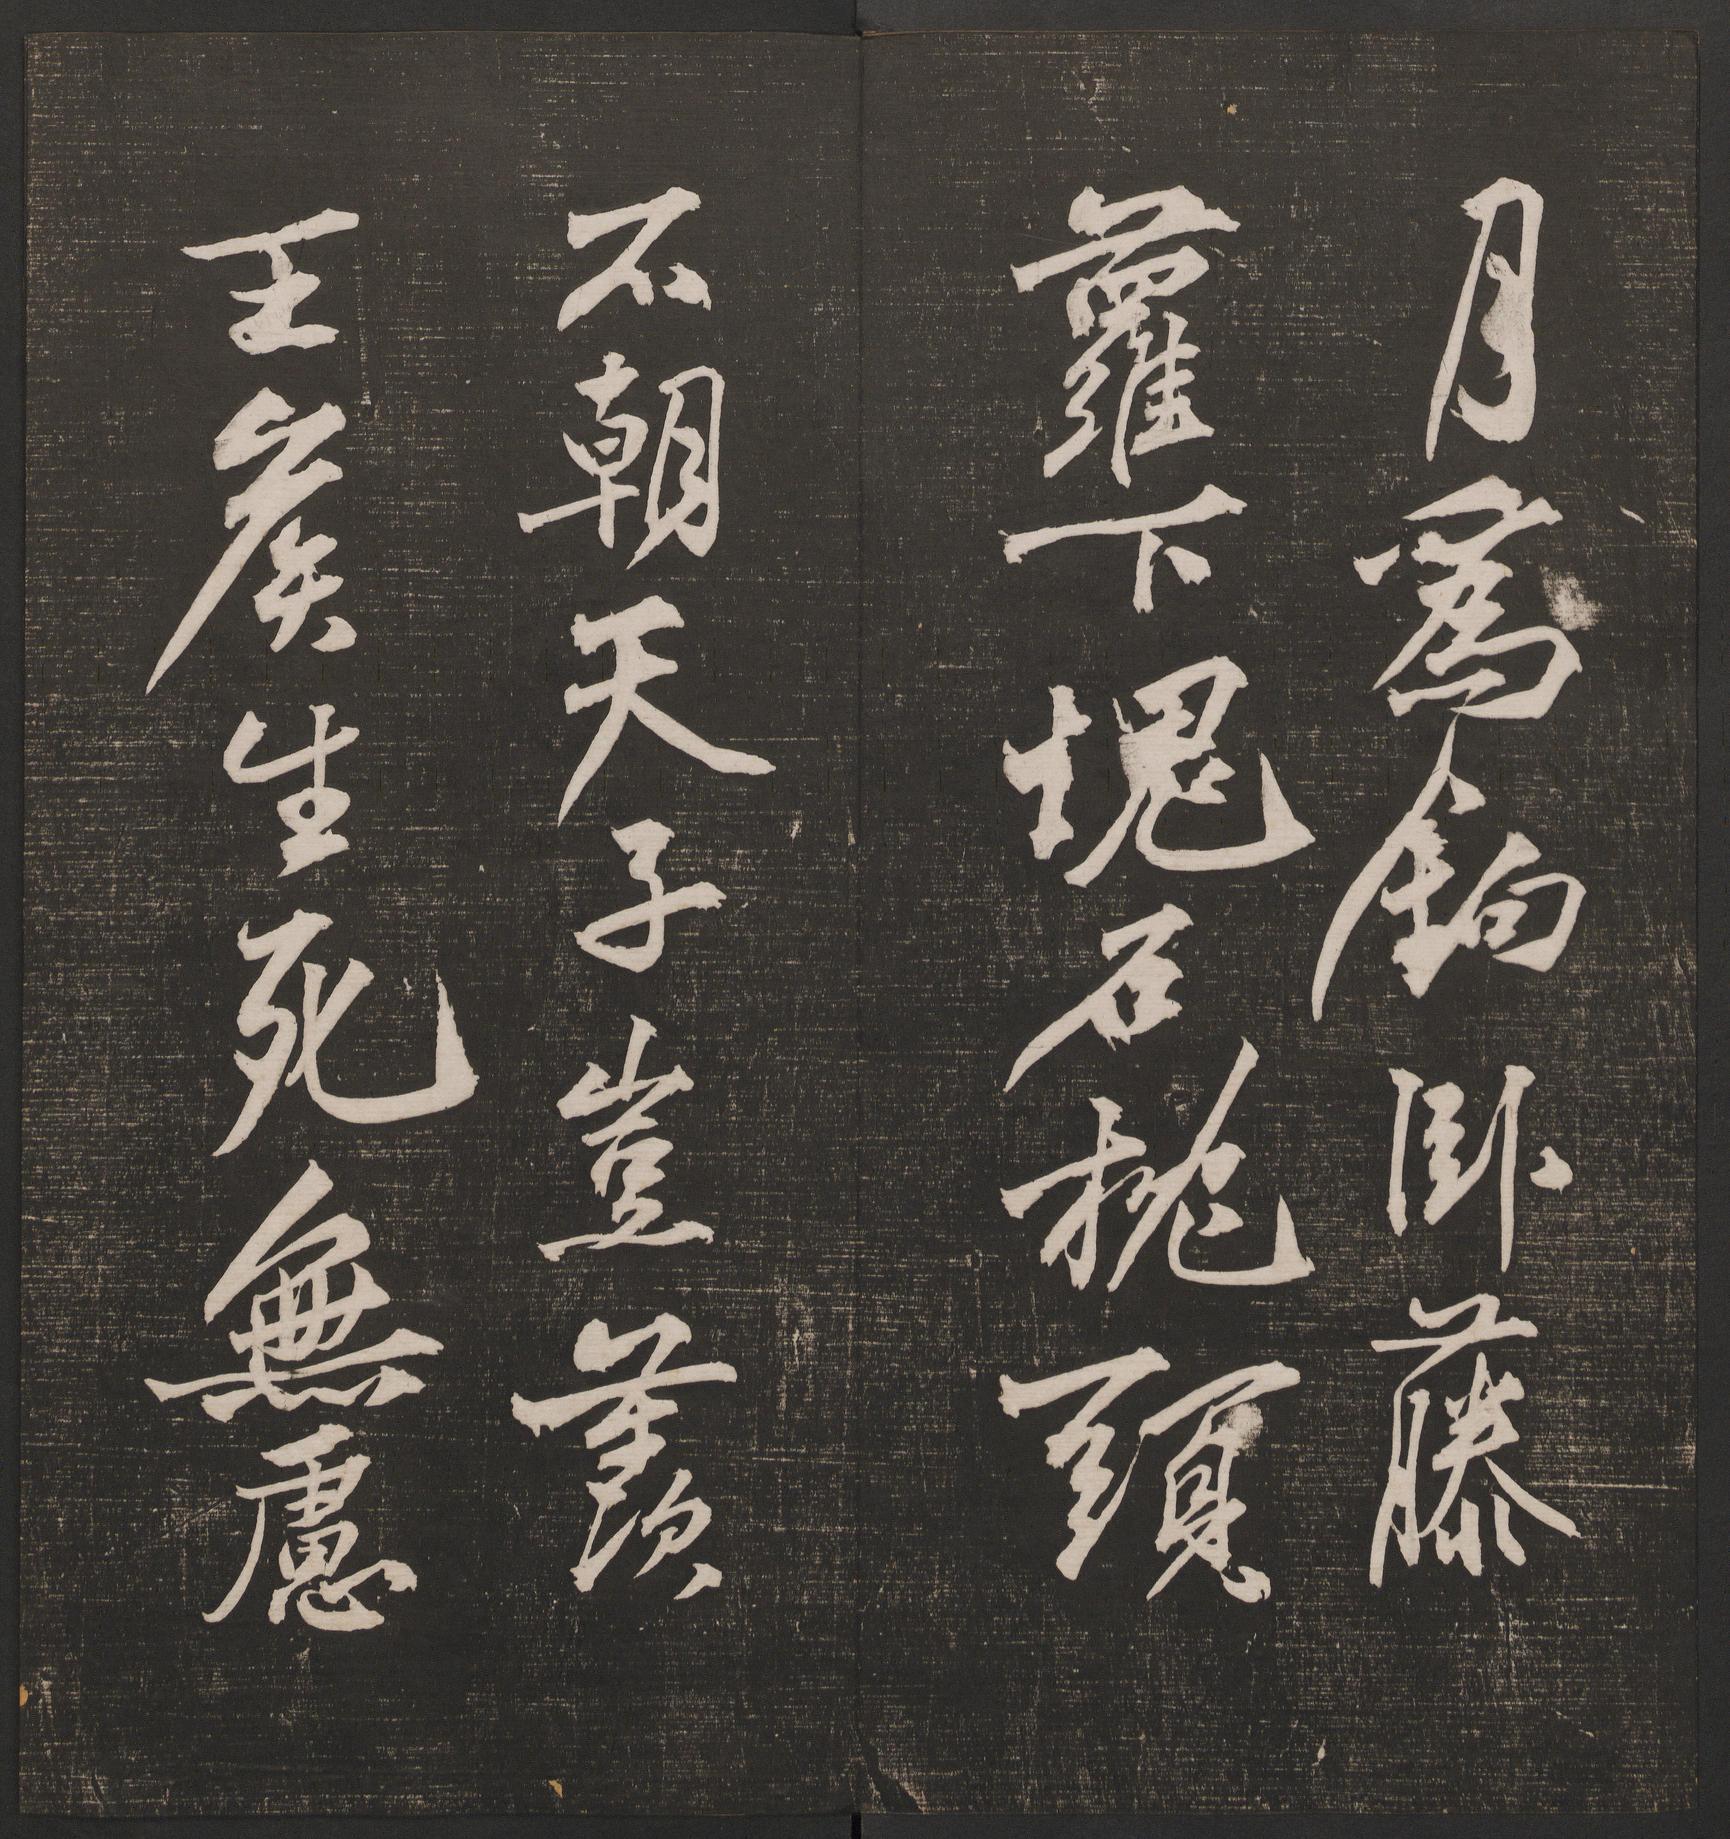 月為鉤卧藤
蘿下塊石枕頭
不朝天子豈羨
王侯生死無慮